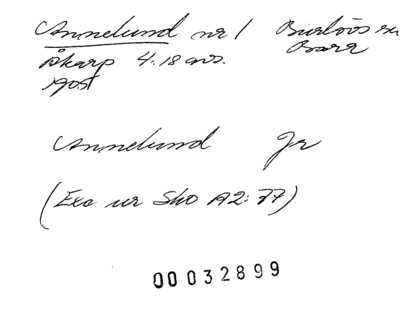 Annelund nr 1 Bjerlövs sn
Åkarp 4:18 avs. Bara
1905
Annelund Gr
(Exc ur Sko A2:77)
00032899